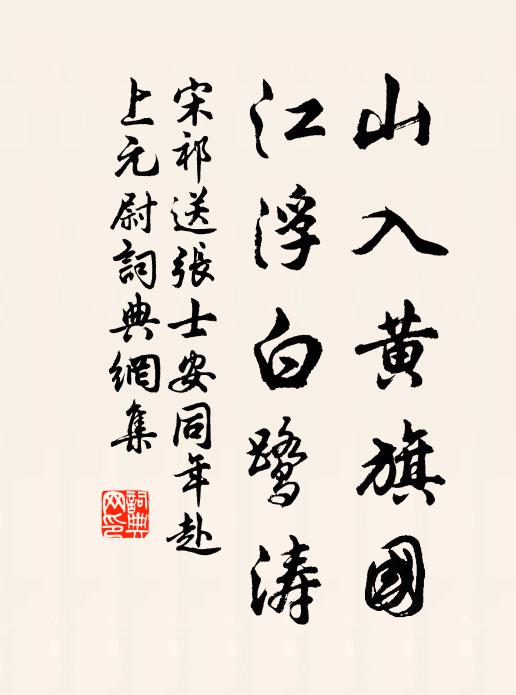 山入黄旗國
江浮白鹭涛
宋祁送張士安同年赴
上元尉詞典網集
詞典网印